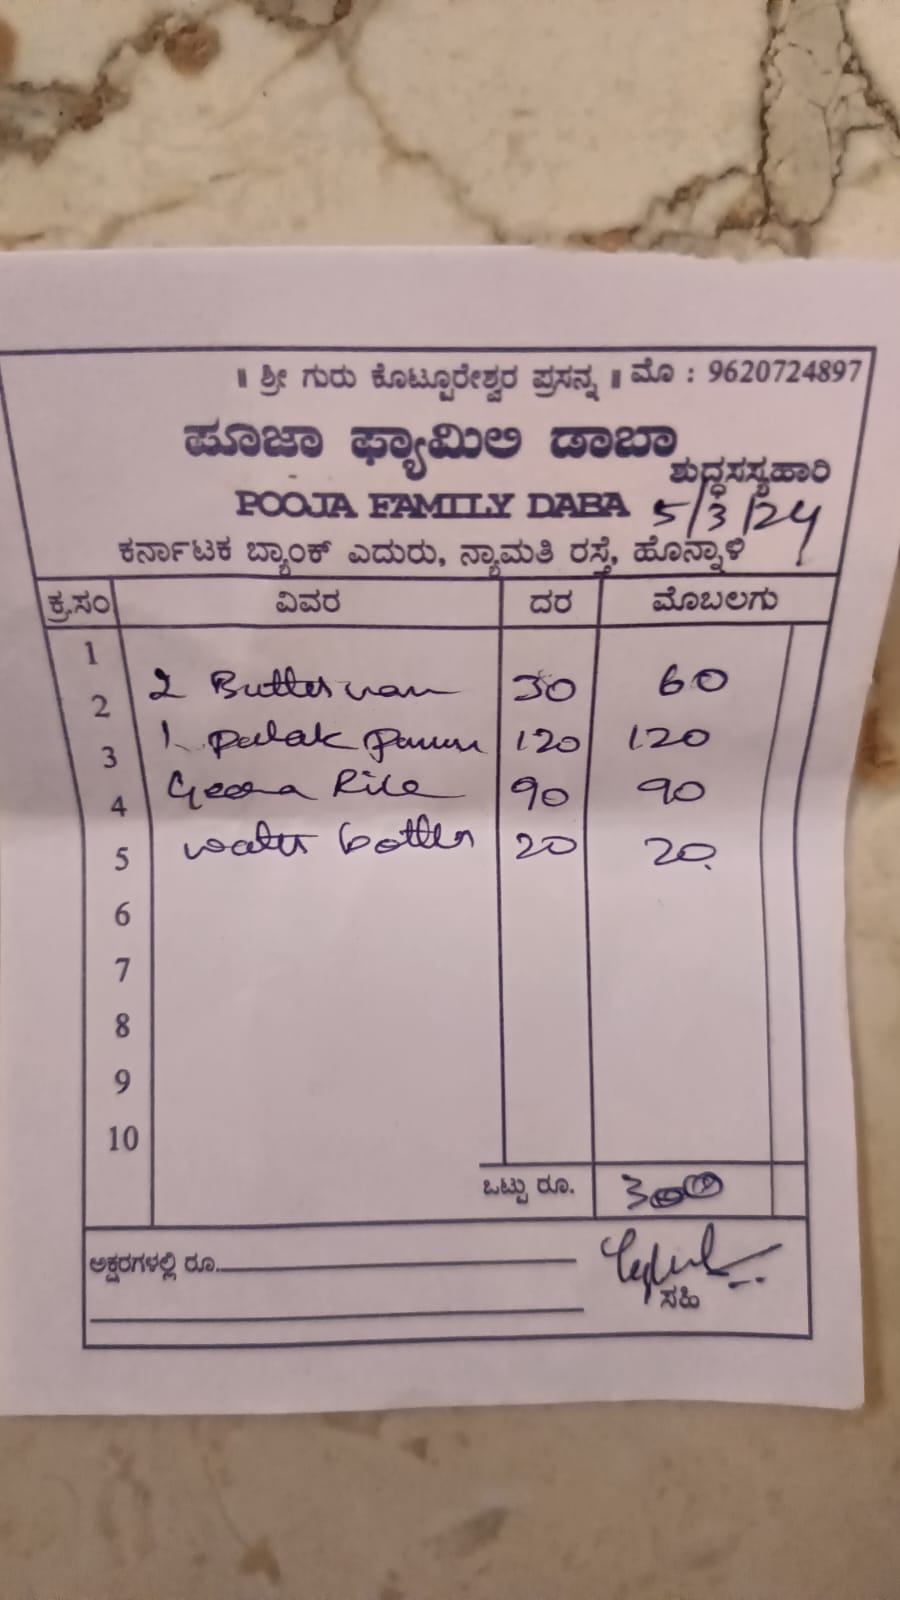 ॥ ಶ್ರೀ ಗುರು ಕೊಟ್ಟೂರೇಶ್ವರ ಪ್ರಸನ್ನ ॥ ಮೊ : 9620724897
ಪೂಜಾ ಫ್ಯಾಮಿಲಿ ಡಾಬಾ
ಶುದ್ಧಸಸ್ಯಹಾರಿ
POOJA FAMILY DABA 5/3/24
ಕರ್ನಾಟಕ ಬ್ಯಾಂಕ್ ಎದುರು, ನ್ಯಾಮತಿ ರಸ್ತೆ, ಹೊನ್ನಾಳಿ
ಕ್ರ.ಸಂ ವಿವರ ದರ ಮೊಬಲಗು
1
2 2 Butter nan 30 60
3 1 palak 120 120
4 Rice 90 90
5 water 20 20
6
7
8
9
10
ಒಟ್ಟು ರೂ. 300
ಅಕ್ಷರಗಳಲ್ಲಿ ರೂ.
ಸಹಿ